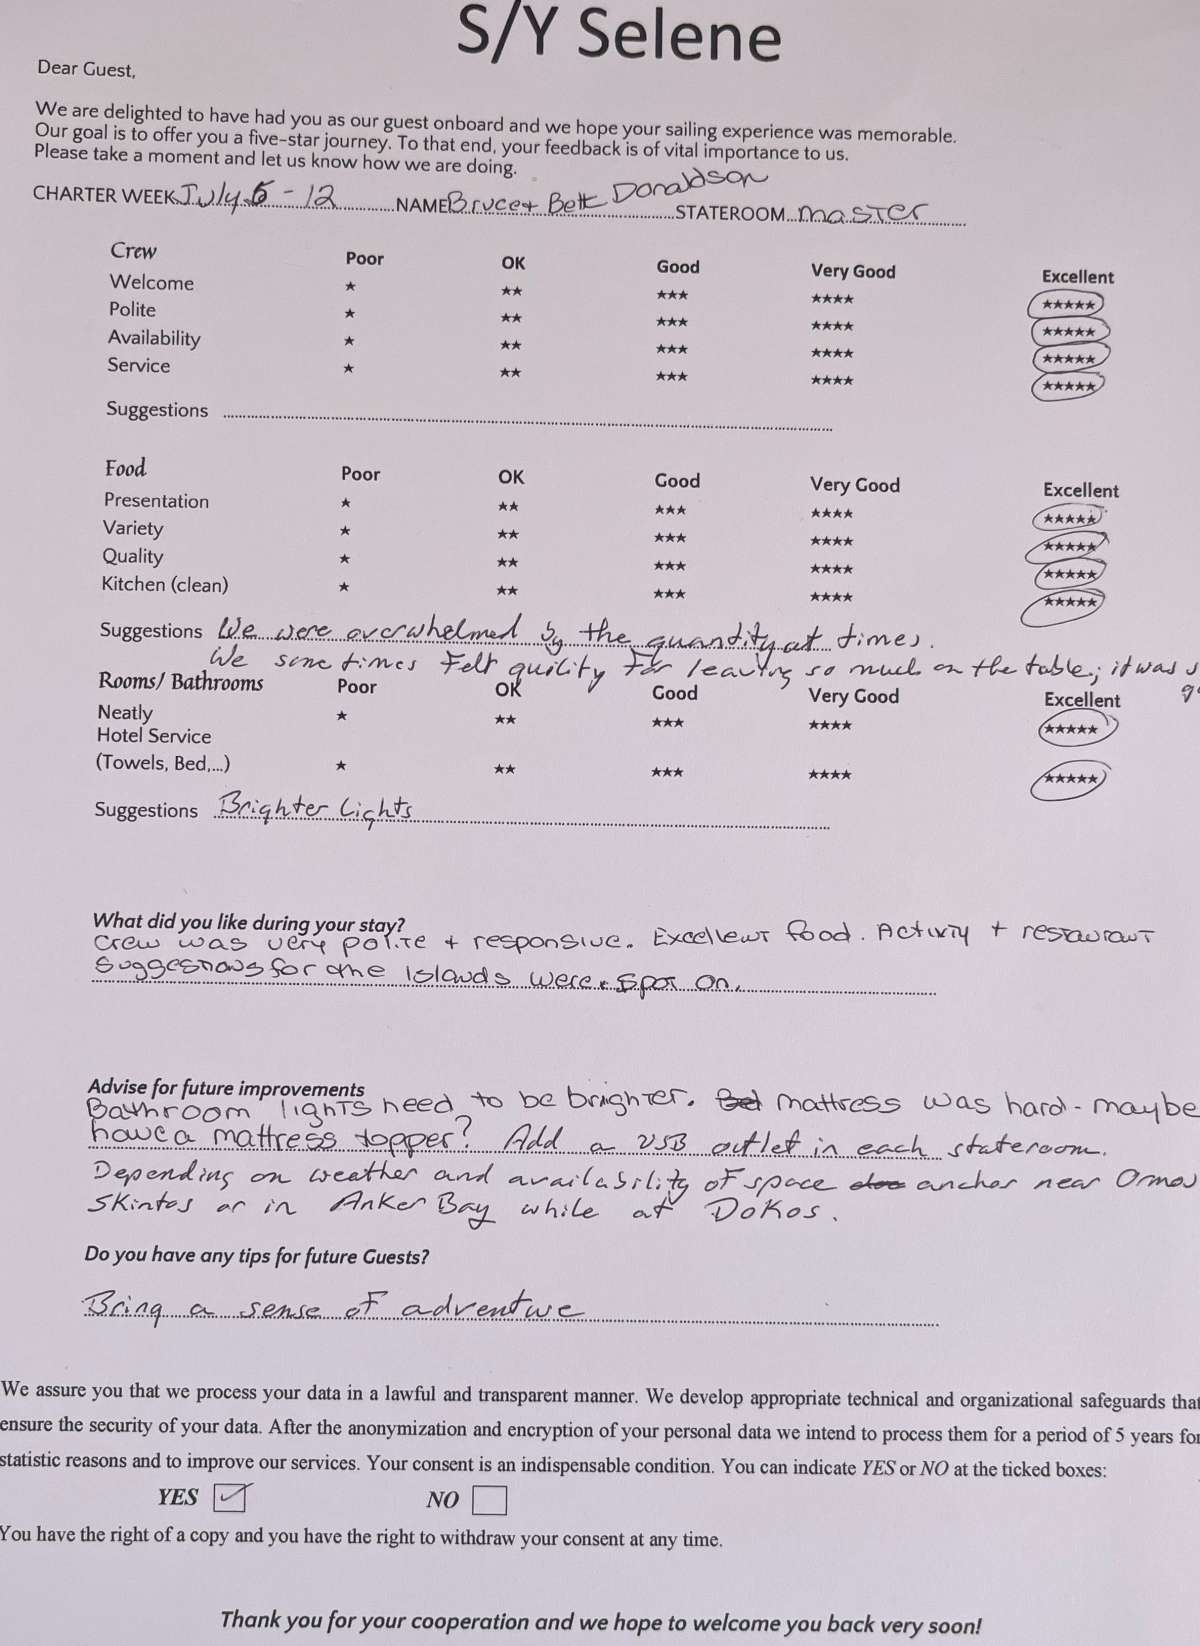 S/Y Selene
Dear Guest,
We are delighted to have had you as our guest onboard and we hope your sailing experience was memorable.
Our goal is to offer you a five-star journey. To that end, your feedback is of vital importance to us.
Please take a moment and let us know how we are doing.
CHARTER WEEK July 5 - 12 NAME Bruce + Beth Donaldson STATEROOM master
Crew Poor OK Good Very Good Excellent
Welcome ★ ★★ ★★★ ★★★★ ★★★★★
Polite ★ ★★ ★★★ ★★★★ ★★★★★
Availability ★ ★★ ★★★ ★★★★ ★★★★★
Service ★ ★★ ★★★ ★★★★ ★★★★★
Suggestions
Food Poor OK Good Very Good Excellent
Presentation ★ ★★ ★★★ ★★★★ ★★★★★
Variety ★ ★★ ★★★ ★★★★ ★★★★★
Quality ★ ★★ ★★★ ★★★★ ★★★★★
Kitchen (clean) ★ ★★ ★★★ ★★★★ ★★★★★
Suggestions We were overwhelmed by the quantity at times.
We sometimes felt quility for leaving so much on the table; it was
Rooms/ Bathrooms Poor OK Good Very Good Excellent
Neatly ★ ★★ ★★★ ★★★★ ★★★★★
Hotel Service
(Towels, Bed,...) ★ ★★ ★★★ ★★★★ ★★★★★
Suggestions Brighter Lights
What did you like during your stay?
Crew was very polite + responsive. Excellent food. Activity + restaurant
suggestions for the islands were spot on.
Advise for future improvements
Bathroom lights need to be brighter. mattress was hard - maybe
have a mattress topper? Add a USB outlet in each stateroom.
Depending on weather and availability of space anchor near Ormos
Skintos or in Anker Bay while at Dokos.
Do you have any tips for future Guests?
Bring a sense of adventure
We assure you that we process your data in a lawful and transparent manner. We develop appropriate technical and organizational safeguards that
ensure the security of your data. After the anonymization and encryption of your personal data we intend to process them for a period of 5 years for
statistic reasons and to improve our services. Your consent is an indispensable condition. You can indicate YES or NO at the ticked boxes:
YES ✓ NO
You have the right of a copy and you have the right to withdraw your consent at any time.
Thank you for your cooperation and we hope to welcome you back very soon!